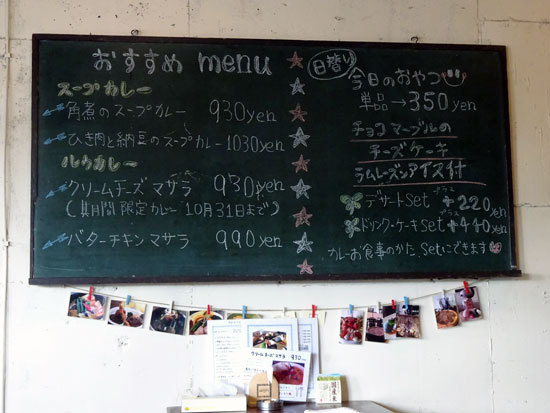 おすすめ menu
スープカレー
角煮のスープカレー 930yen
ひき肉と納豆のスープカレー 1030yen
ルウカレー
クリームチーズ マサラ 930yen
(期間限定カレー 10月31日まで)
バターチキン マサラ 990yen
日替り
今日のおやつ
単品→350yen
チョコマーブルの
チーズケーキ
ラムレーズンアイス付
デザートset プラス +220yen
ドリンク・ケーキset プラス +440yen
カレーお食事のかた、setにできます
クリームチーズマサラ 930